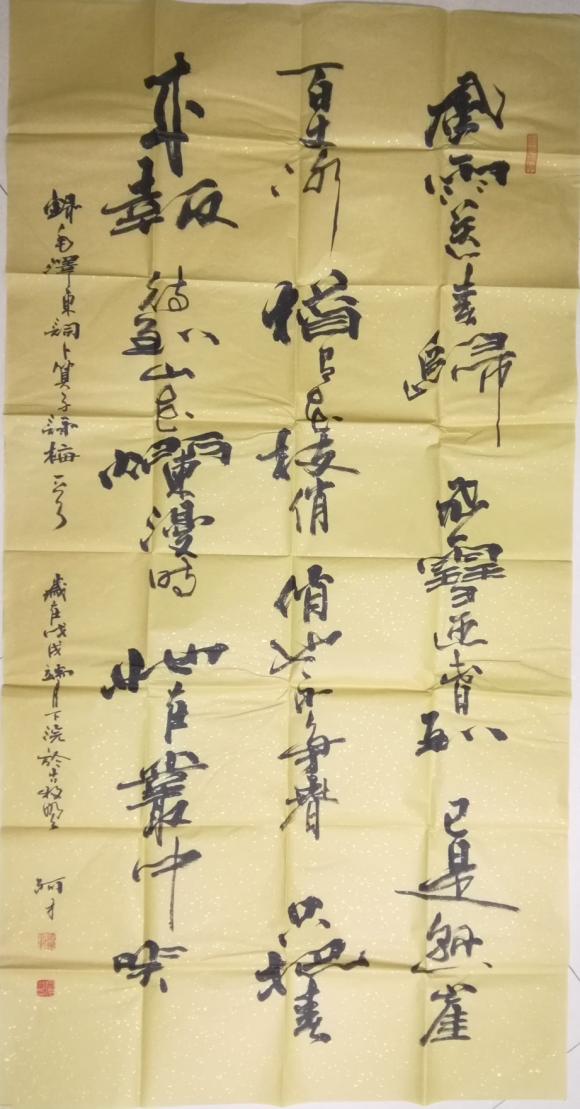 風雨送春歸 飛雪迎春到 已是懸崖
百丈冰 猶有花枝俏 俏也不争春 只把春
來報 待到山花爛漫時 她在叢中笑
錄毛澤東詞卜算子詠梅一首 歲在戊戌端月下浣於古牧野 才